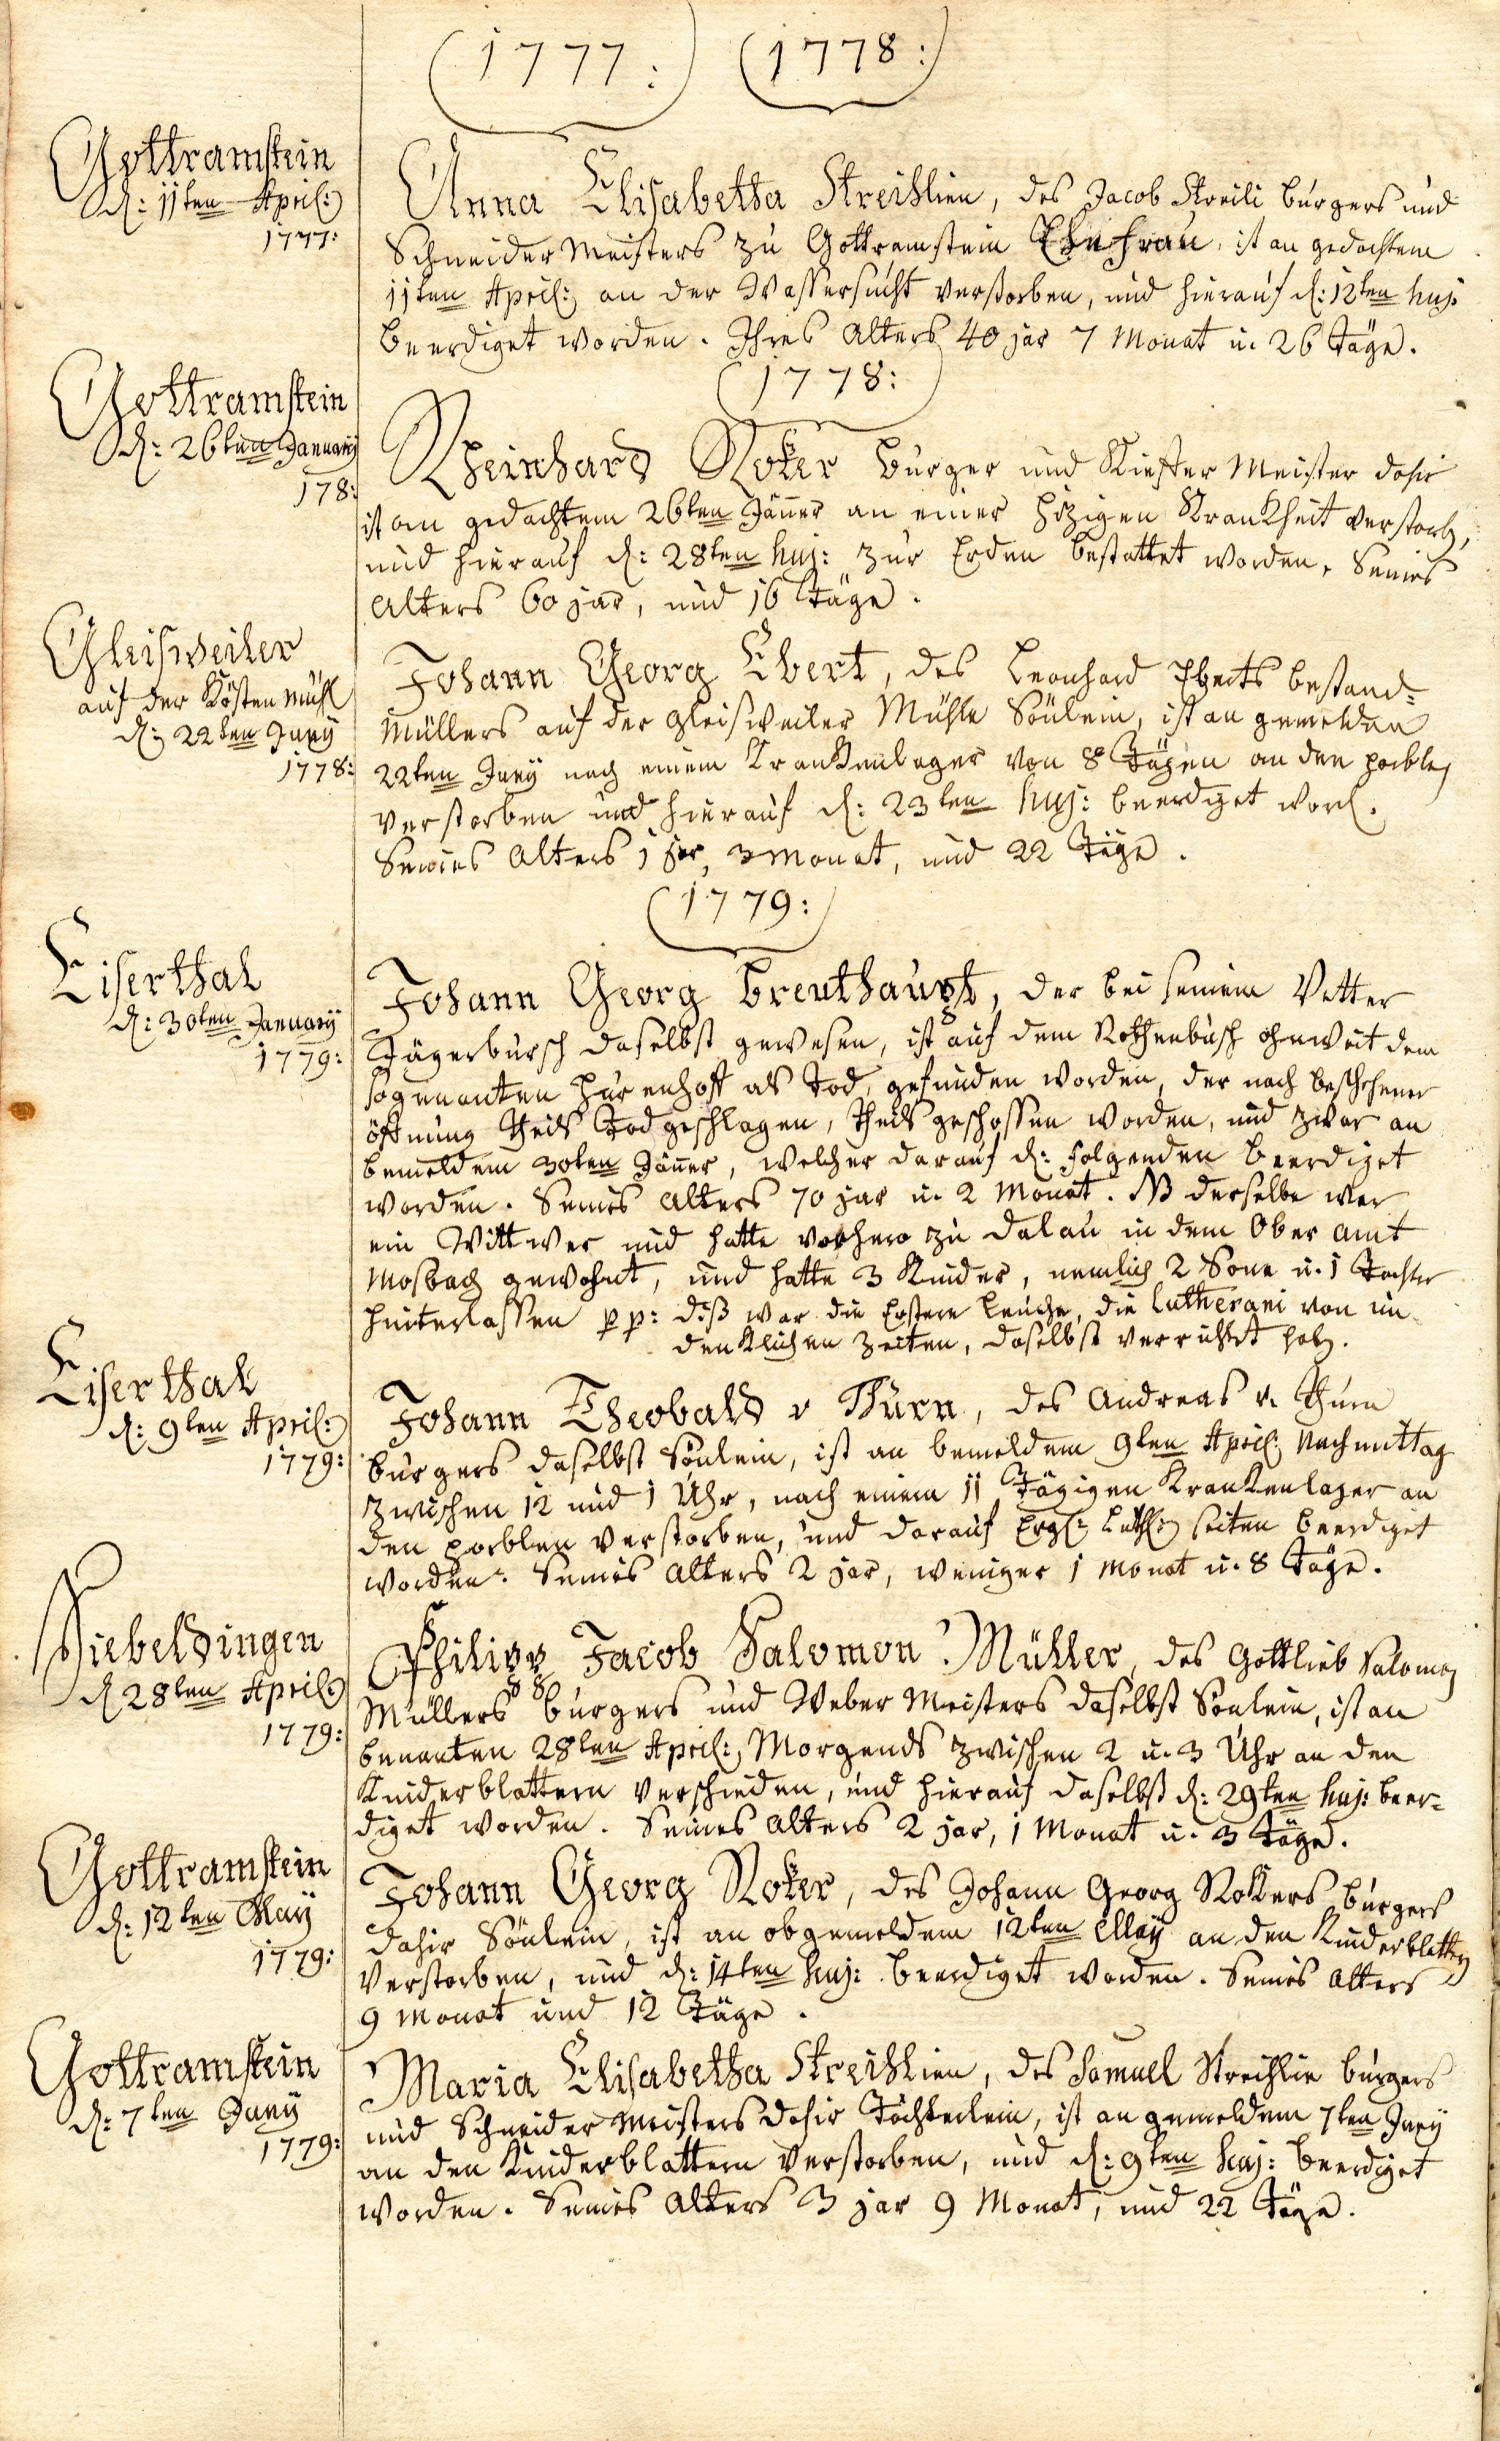 1777: 1778:
Gottramstein
d: 11ten April:
1777:
Anna Elisabetha Streihlien, des Jacob Streili burgers und
Schneider Meisters zu Gottramstein Ehefrau, ist an gedachtem
11ten April: an der Wassersucht verstorben, und hierauf d: 12ten huj:
beerdiget worden. Ihres Alters 40 jar 7 Monat u. 26 Täge.
1778:
Gottramstein
d: 26ten January
178:
Rheinhard Roker burger und Kieffer Meister dahir
ist am gedachtem 26ten Jäner an einer hizigen Krankheit verstorb,
und hierauf d: 28ten huj: zur Erden bestattet worden. Seines
Alters 60 jar, und 16 Täge.
Gleisweiler
auf der Kösten Mühl
d: 22ten Juny
1778:
Johann Georg Ebert, des Leonhard Eberts bestand-
Müllers auf der Gleisweiler Mühle Sönlein, ist an gemelden
22ten Juny nach einem Krankenlager von 8 Tägen an den porblen
verstorben und hierauf d: 23ten huj: beerdiget word.
Seines Alters 1 jar, 3 Monat, und 22 Täge.
1779:
Eiserthal
d: 30ten January
1779:
Johann Georg Breuthaupt, der bei seinem Vetter
Jägerbursch daselbst gewesen, ist auf dem Rothenbusch ohnweit dem
sogenanten Hurenhoff als Tod, gefunden worden, der nach beschehener
öffnung theils Tod geschlagen, theils geschossen worden, und zwar an
bemeldem 30ten Jäner, welcher darauf d: folgenden beerdiget
worden. Seines Alters 70 jar u. 2 Monat. NB derselbe war
ein Wittwer und hatte vorhero zu Dalau in dem Ober Amt
Mosbach gewohnt, und hatte 3 Kinder, nemlich 2 Söne u. 1 Tochter
hinterlassen pp: diß war die Erstere Leiche, die Lutherani von un
denklichen Zeiten, daselbst verrichtet hab.
Eiserthal
d: 9ten April:
1779:
Johann Theobald v Thurn, des Andreas v. Thurn
burgers daselbst Sönlein, ist an bemeldem 9ten April: Nachmittag
zwischen 12 und 1 Uhr, nach einem 11 Tägigen Krankenlager an
den porblen verstorben, und darauf Ergl: Luth: seiten beerdiget
worden. Seines Alters 2 jar, weniger 1 Monat u. 8 Täge.
Siebeldingen
d 28ten April:
1779:
Philipp Jacob Salomon Müller, des Gottlieb Salomon
Müllers burgers und Weber Meisters daselbst Sönlein, ist an
benanten 28ten April:, Morgends zwischen 2 u. 3 Uhr an den
Kinderblattern verschieden, und hierauf daselbst d: 29ten huj: beer-
diget worden. Seines Alters 2 jar, 1 Monat u. 3 Täge.
Gottramstein
d: 12ten May
1779:
Johann Georg Roker, des Johann Georg Rokers burgers
dahir Sönlein, ist an obgemeldem 12ten May an den Kinderblattern
verstorben, und d: 14ten huj: beerdiget worden. Seines Alters
9 Monat und 12 Täge.
Gottramstein
d: 7ten Juny
1779:
Maria Elisabetha Streihlien, des Samuel Streihlie burgers
und Schneider Meisters dahir Töchterlein, ist an gemeldem 7ten Juny
an den Kinderblattern verstorben, und d: 9ten huj: beerdiget
worden. Seines Alters 3 jar 9 Monat, und 22 Täge.